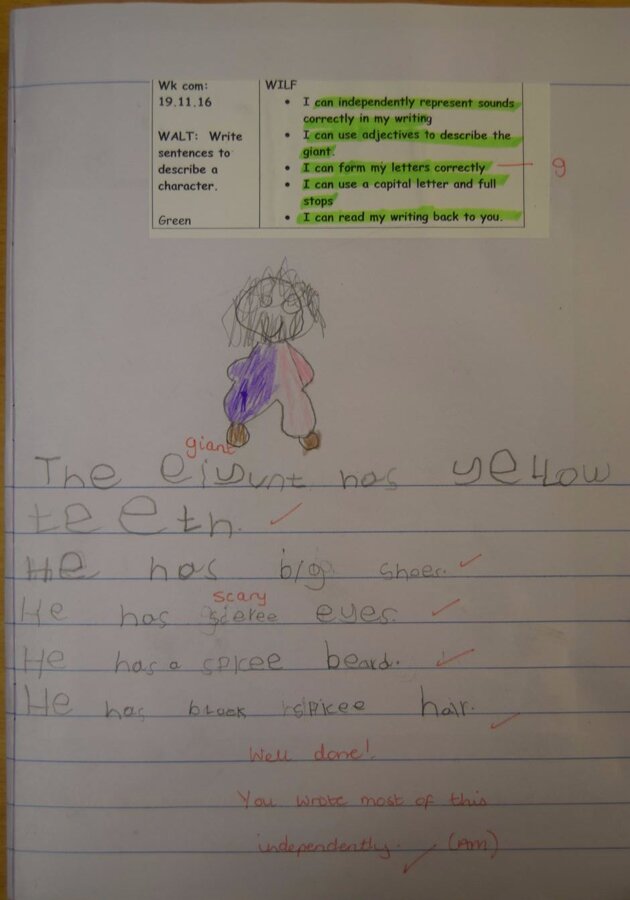 Wk com:
19.11.16
WALT: Write
sentences to
describe a
character.
Green
WILF
• I can independently represent sounds
correctly in my writing
• I can use adjectives to describe the
giant.
• I can form my letters correctly
• I can use a capital letter and full
stops
• I can read my writing back to you.
g
giant
The eiyunt has yellow
teeth.
He has big shoes.
scary
He has eyes.
He has a spicee beard.
He has black spicee hair.
Well done!
You wrote most of this
independently. (AM)